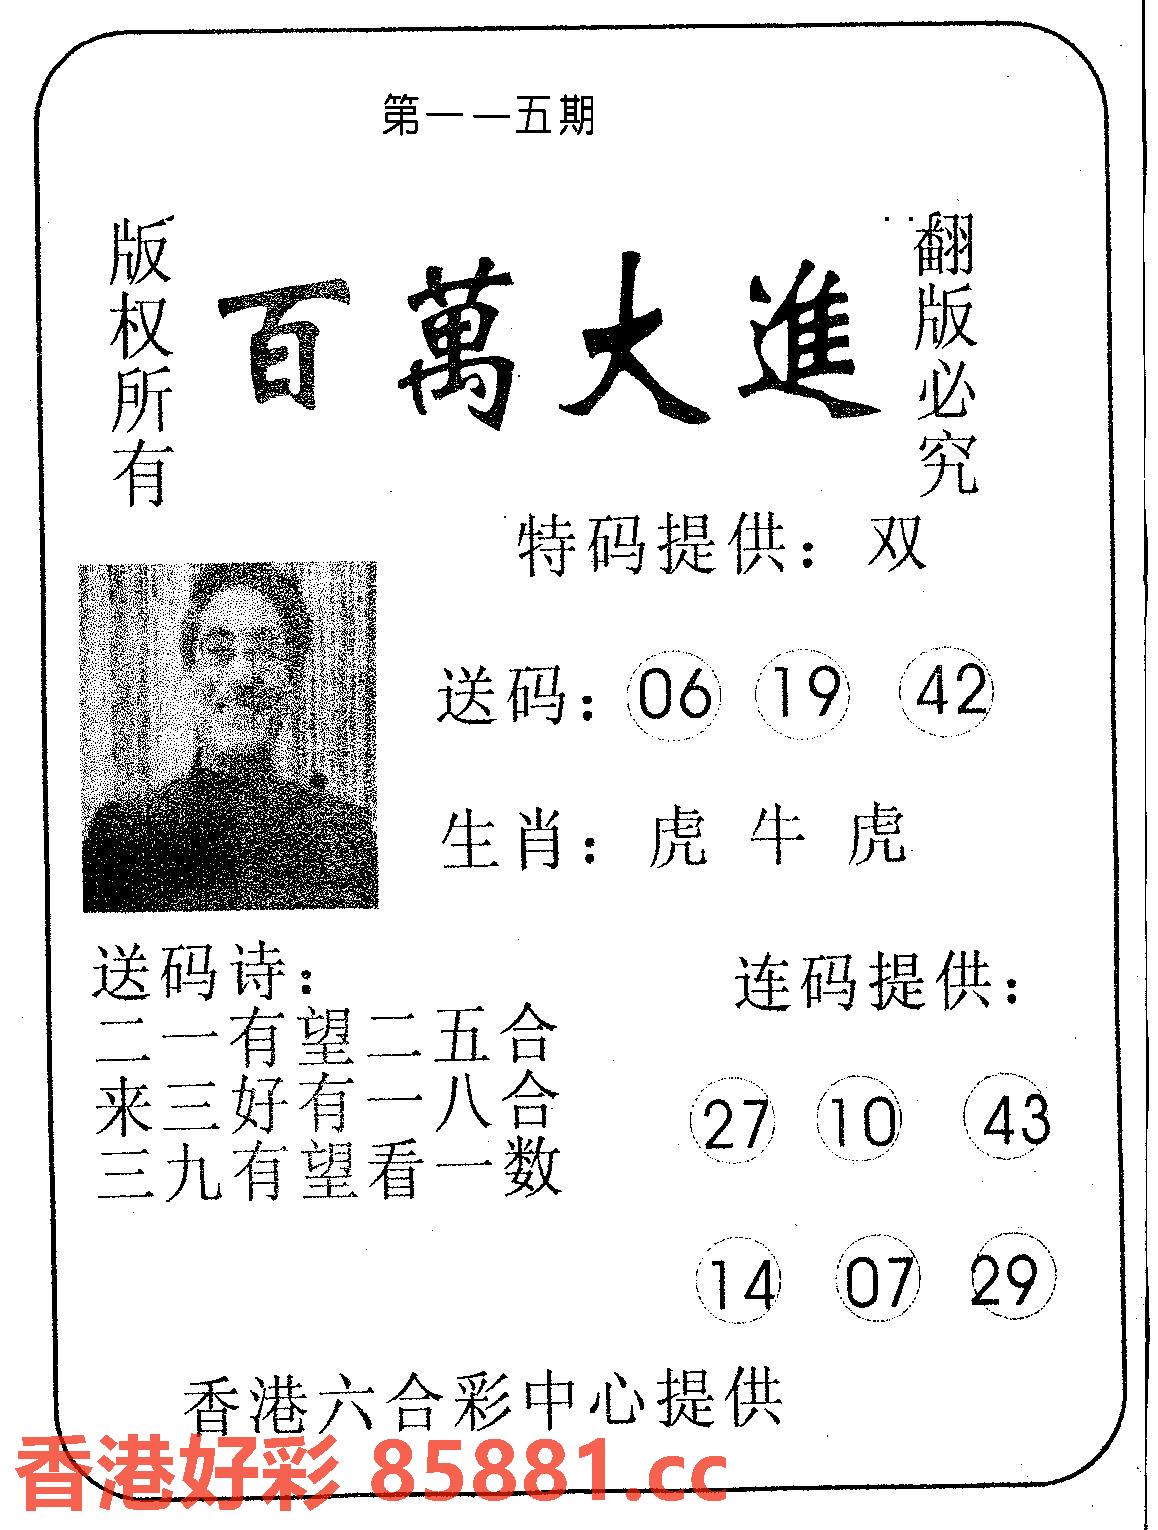 第一一五期
版权所有
百萬大進
翻版必究
特码提供：双
送码：06 19 42
生肖：虎 牛 虎
送码诗：
二一有望二五合
来三好有一八合
三九有望看一数
连码提供：
27 10 43
14 07 29
香港六合彩中心提供
香港好彩 85881.cc